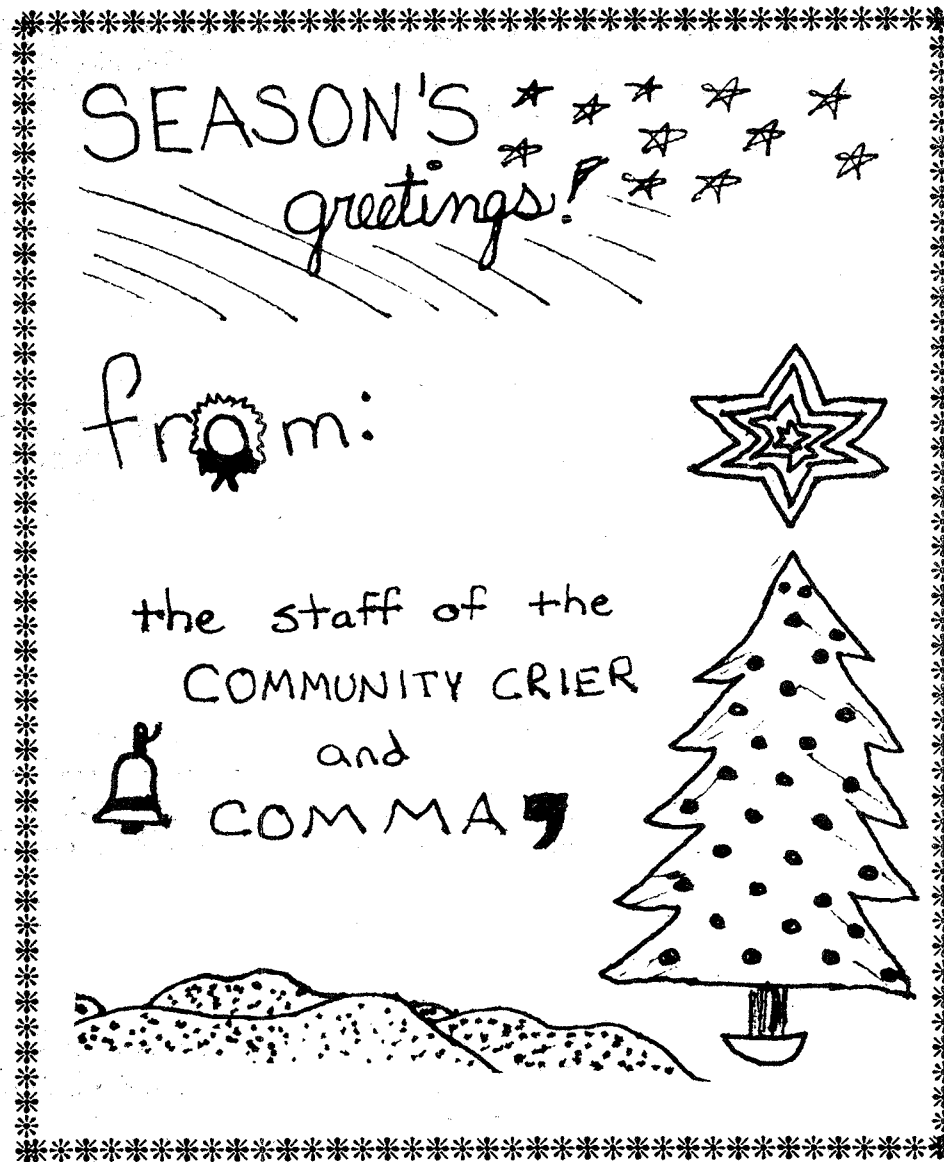 SEASON'S
greetings!
from:
the staff of the
COMMUNITY CRIER
and
COMMA,